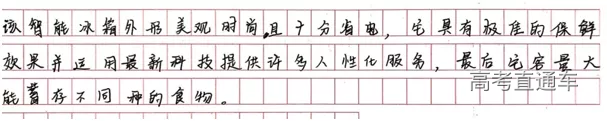 该智能冰箱外形美观时尚,且十分省电，它具有极佳的保鲜
效果并运用最新科技提供许多人性化服务，最后它容量大
能蓄存不同种的食物。
高考直通车